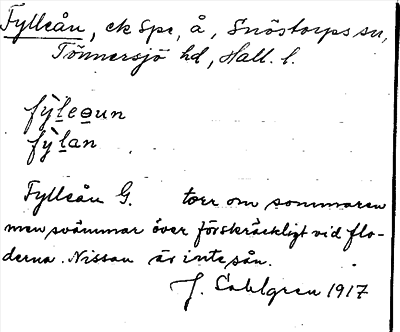 Fylleån, ek Spe, å, Snöstorps sn,
Tönnersjö hd, Hall. l.
fỳleəun
fỳlan
Fylleån G. torr om sommaren
men svämmar över förskräckligt vid flo-
derna. Nissan är inte sån.
J. Sahlgren 1917